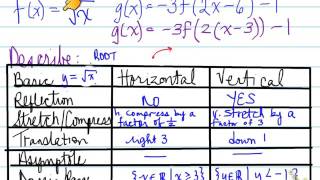 f(x) = √x  g(x) = -3f(2x-6) -1
g(x) = -3f(2(x-3)) -1
Describe: ROOT
Basic y=√x Horizontal Vertical
Reflection NO YES
Stretch/Compress h. compress by a factor of 1/2 v. stretch by a factor of 3
Translation right 3 down 1
Asymptote — —
{x∈R|x≥3} {y∈R|y≤-1}